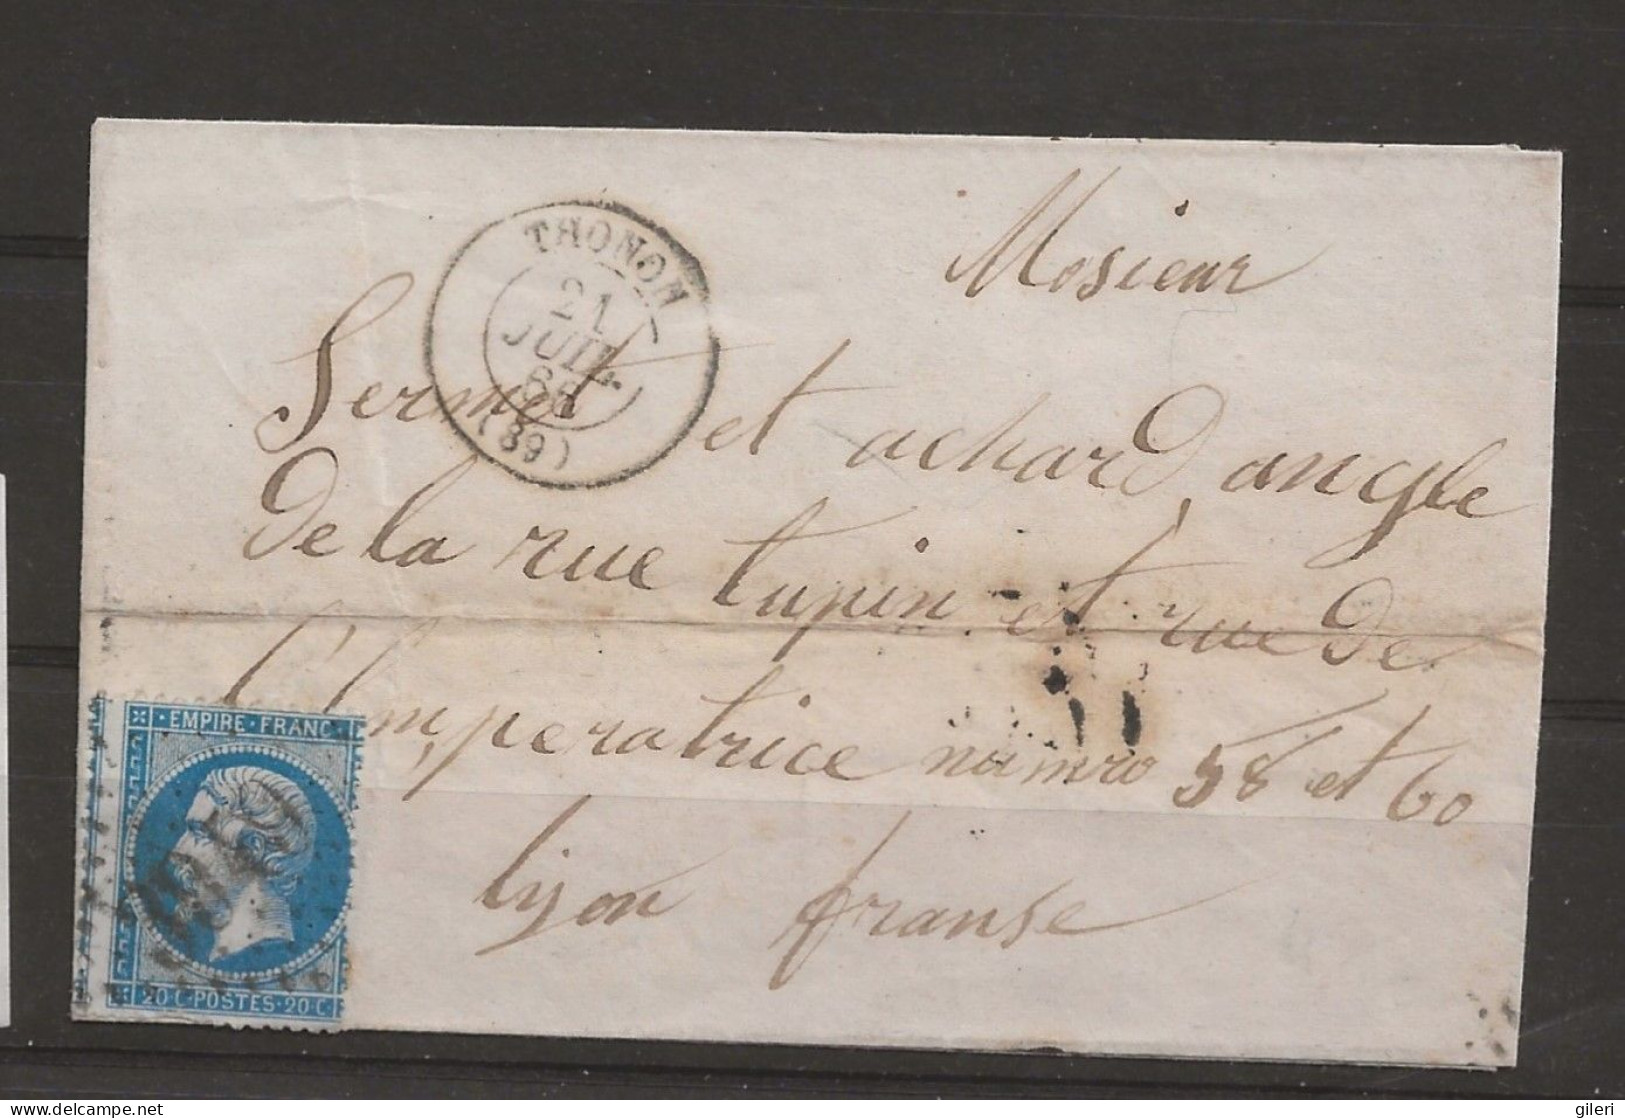 Mosieur
THONON
21
JUIL.
66
(89)
Sermet et achard, angle
de la rue tupin et rue de
l'Imperatrice numro 58 et 60
lyon franse
EMPIRE · FRANC
20·C·POSTES·20·C
delcampe.net
gileri